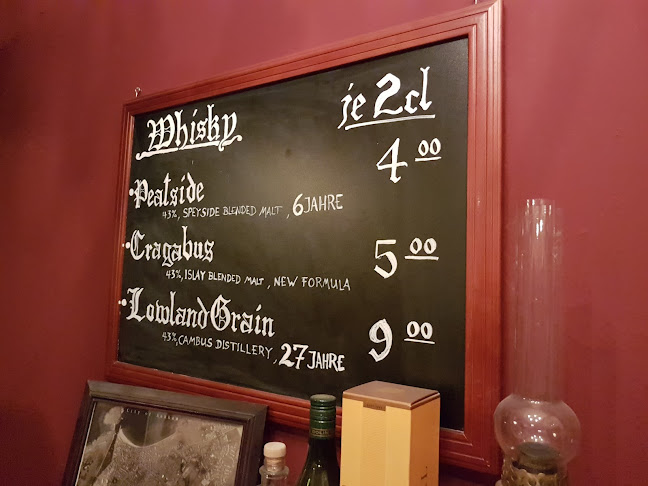 Whisky
je 2cl
•Peatside 4 00
43%, SPEYSIDE BLENDED MALT, 6 JAHRE
•Cragabus 5 00
43%, ISLAY BLENDED MALT, NEW FORMULA
•Lowland Grain 9 00
43%, CAMBUS DISTILLERY, 27 JAHRE